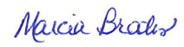 Marcia Brady